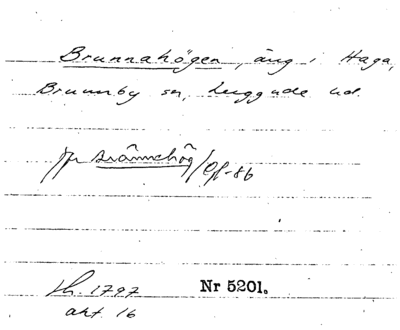 Brunnahögen, äng i Haga,
Brunnby sn, Luggude hd.
Brännehög/Off-86
Sk. 1797 Nr 5201.
akt. 16